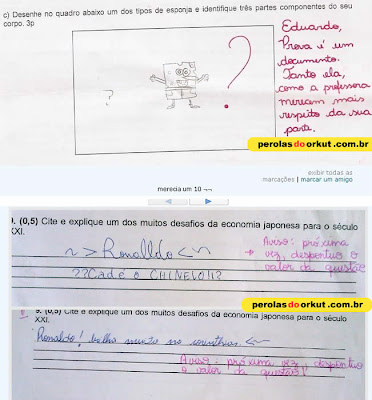 c) Desenhe no quadro abaixo um dos tipos de esponja e identifique três partes componentes do seu
corpo. 3p
Eduardo,
Prova é um
documento.
Tanto ela,
como a professora
merecem mais
respeito da sua
parte.
?
?
perolasdoorkut.com.br
exibir todas as
marcações | marcar um amigo
merecia um 10 ¬¬
. (0,5) Cite e explique um dos muitos desafios da economia japonesa para o século
XXI.
~ > Ronalldo < ~
??Cadê o CHINELO!!?
Aviso: próxima
vez, despontuo o
valor da questão
perolasdoorkut.com.br
9. (0,5) Cite e explique um dos muitos desafios da economia japonesa para o século
XXI.
Ronaldo! muito no corinthias.
Aviso: próxima vez, despontuo
o valor da questão!